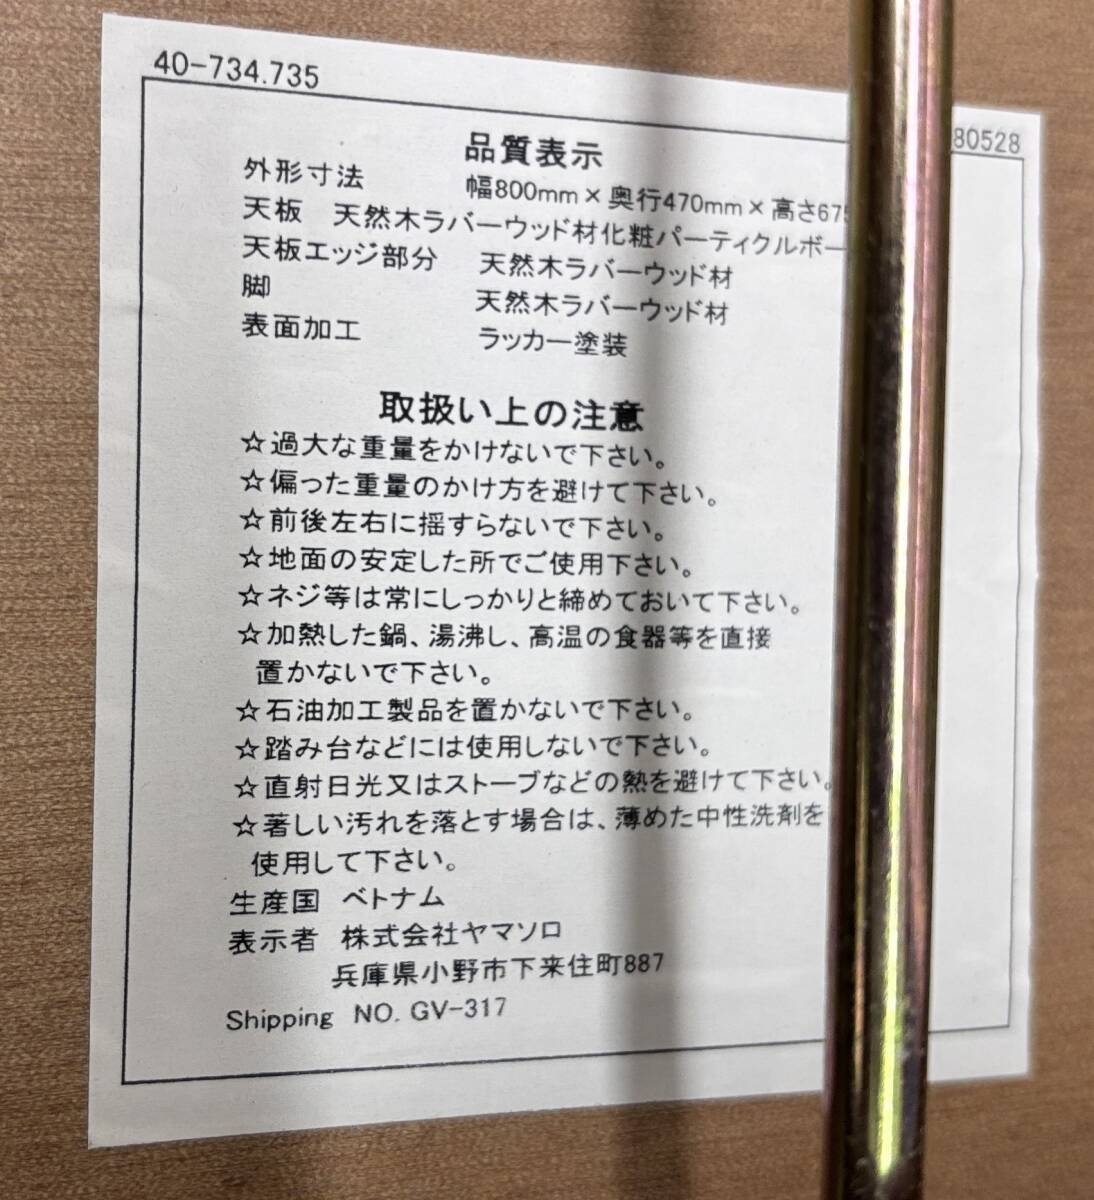 40-734.735
80528
品質表示
外形寸法 幅800mm×奥行470mm×高さ675
天板 天然木ラバーウッド材化粧パーティクルボー
天板エッジ部分 天然木ラバーウッド材
脚 天然木ラバーウッド材
表面加工 ラッカー塗装
取扱い上の注意
☆過大な重量をかけないで下さい。
☆偏った重量のかけ方を避けて下さい。
☆前後左右に揺すらないで下さい。
☆地面の安定した所でご使用下さい。
☆ネジ等は常にしっかりと締めておいて下さい。
☆加熱した鍋、湯沸し、高温の食器等を直接
置かないで下さい。
☆石油加工製品を置かないで下さい。
☆踏み台などには使用しないで下さい。
☆直射日光又はストーブなどの熱を避けて下さい。
☆著しい汚れを落とす場合は、薄めた中性洗剤を
使用して下さい。
生産国 ベトナム
表示者 株式会社ヤマソロ
兵庫県小野市下来住町887
Shipping NO. GV-317